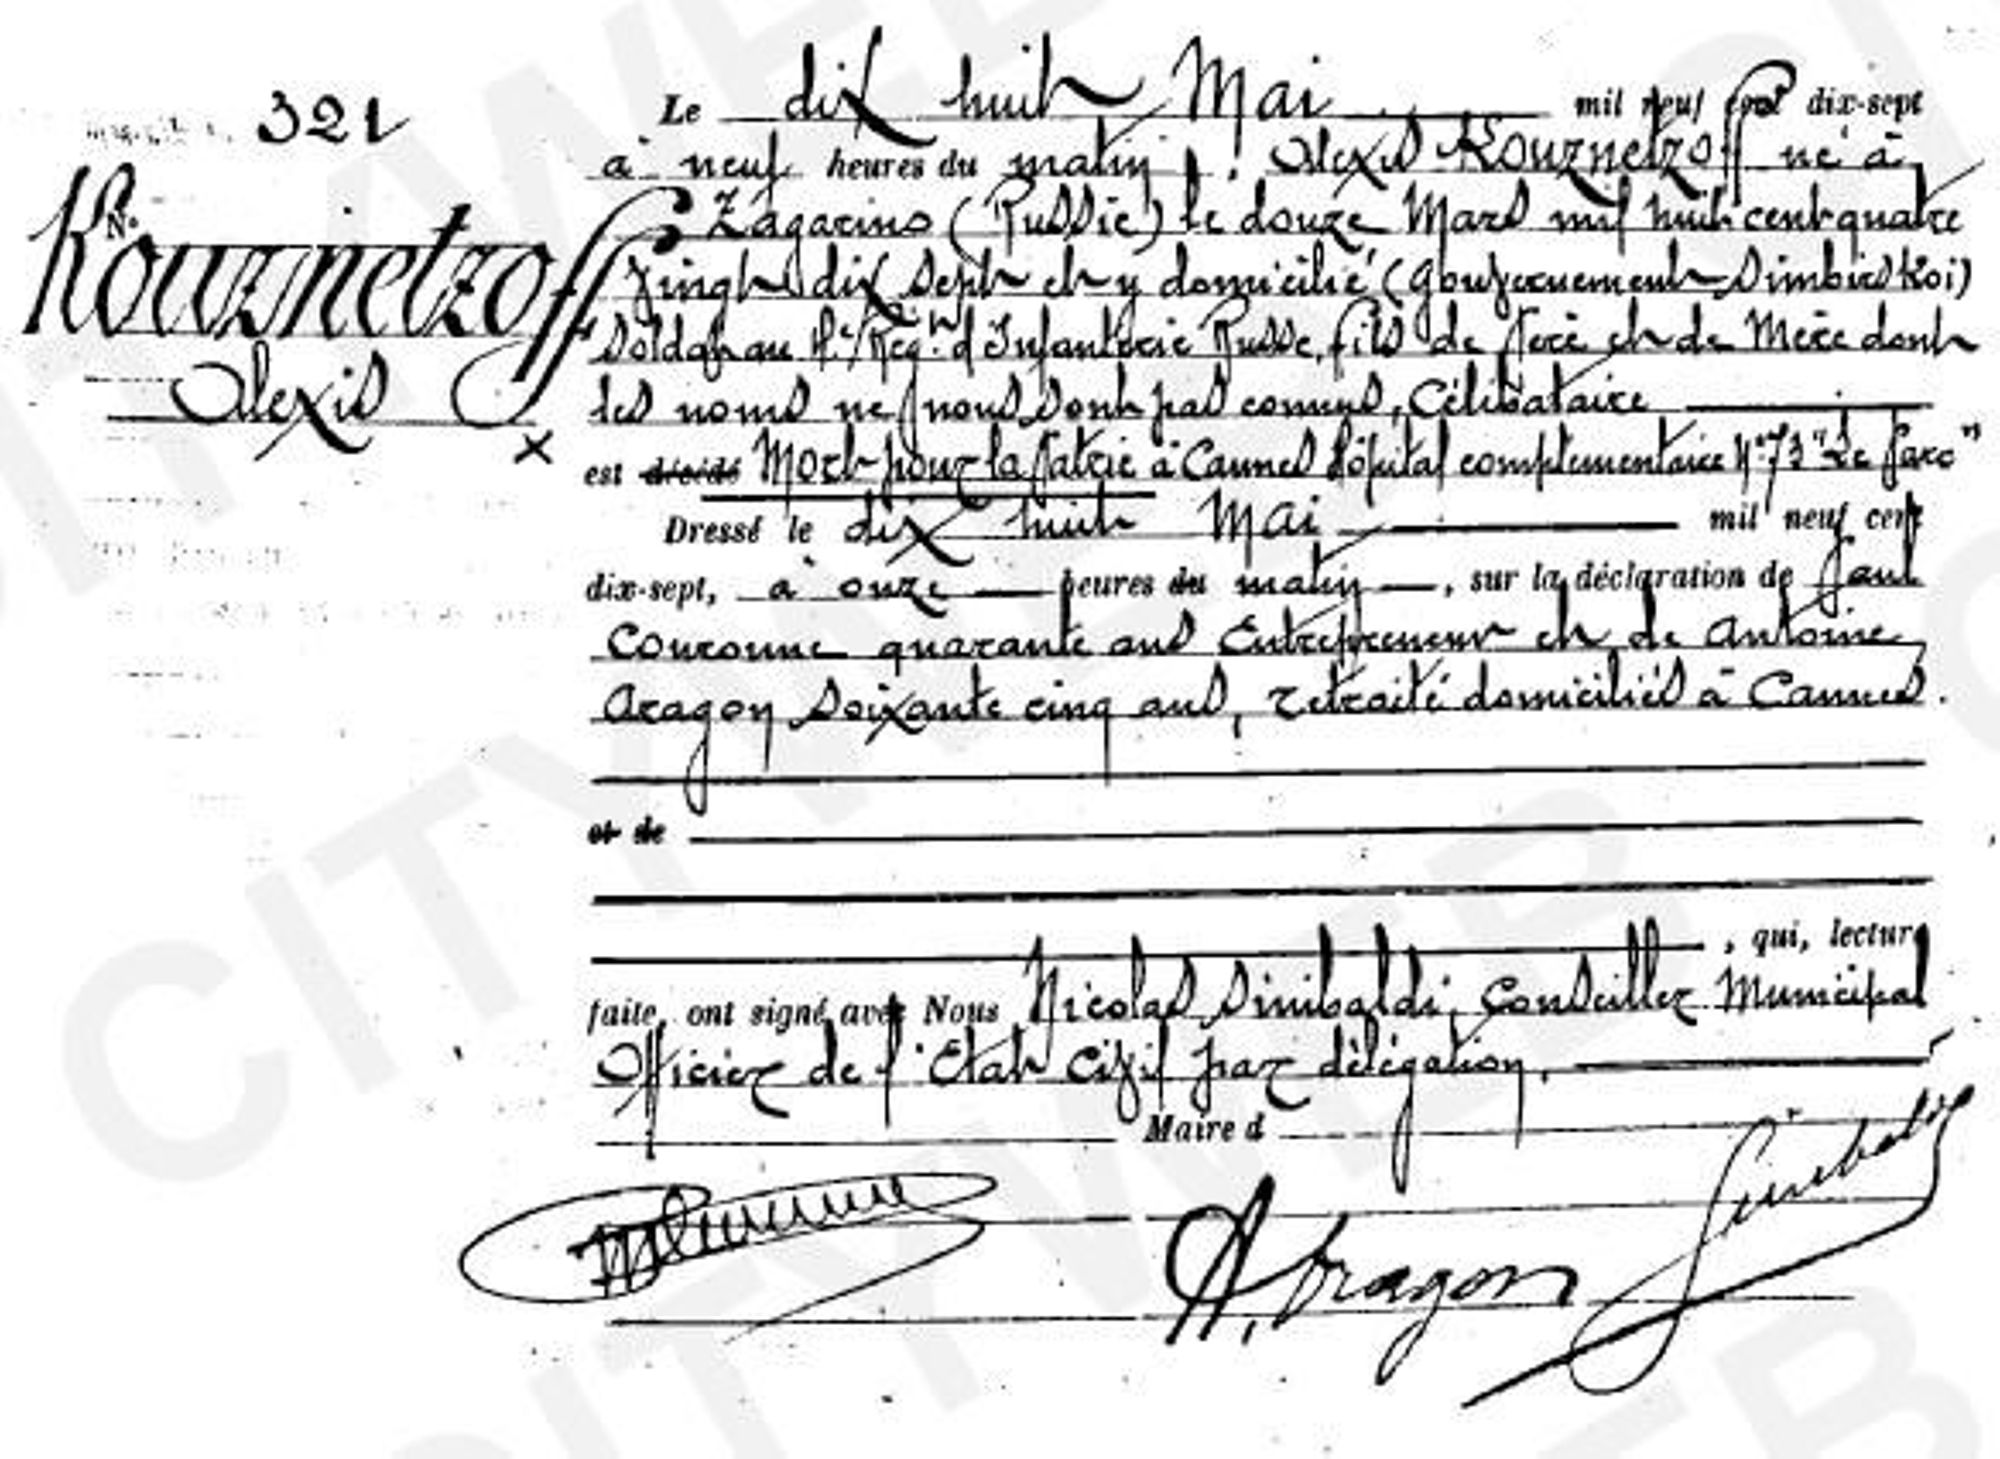 321
N°
Kouznetzoff
Alexis
x
Le dix huit Mai mil neuf cent dix-sept
à neuf heures du matin, Alexis Kouznetzoff né à
Zagarino (Russie) le douze Mars mil huit cent quatre
vingt dix sept et y domicilié (Gouvernement Simbirskoi)
Soldat au Régt d'Infanterie Russe, fils de Père et de Mère dont
les noms ne nous sont pas connus, Célibataire
est décédé Mort pour la Patrie à Cannes hôpital complémentaire N° 73 "Le Parc"
Dressé le dix huit Mai mil neuf cent
dix-sept, à onze heures du matin, sur la déclaration de Paul
Couronne quarante ans Entrepreneur et de Antoine
Aragon soixante cinq ans, retraité domiciliés à Cannes.
et de
, qui, lecture
faite, ont signé avec Nous Nicolas Sinibaldi, Conseiller Municipal
Officier de l'Etat Civil par délégation.
Maire d
A. Aragon
Sinibaldi
CITYWEB